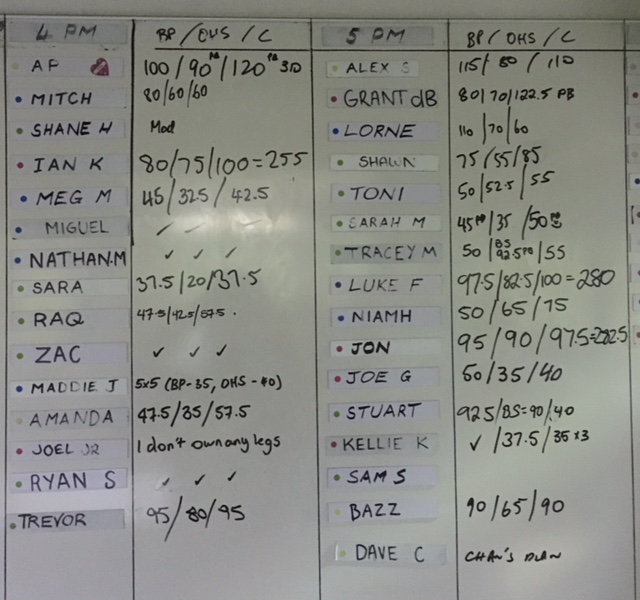 4 PM BP / OHS / C
AP 100 / 90 PB / 120 PB 310
MITCH 80/60/60
SHANE H Mod
IAN K 80/75/100=255
MEG M 45/32.5/42.5
MIGUEL ✓ ✓ ✓
NATHAN.M ✓ ✓ ✓
SARA 37.5/20/37.5
RAQ 47.5/42.5/57.5
ZAC ✓ ✓ ✓
MADDIE J 5x5 (BP-35, OHS-40)
AMANDA 47.5/35/57.5
JOEL JR I don't own any legs
RYAN S ✓ ✓ ✓
TREVOR 95/80/95
5 PM BP / OHS / C
ALEX S 115/ 80 / 110
GRANT dB 80/70/122.5 PB
LORNE 110/70/60
SHAWN 75/55/85
TONI 50/52.5/55
SARAH M 45 PB/35/50 PB
TRACEY M 50/BS 92.5 PB/55
LUKE F 97.5/82.5/100=280
NIAMH 50/65/75
JON 95/90/97.5=282.5
JOE G 50/35/40
STUART 92.5/BS=90/40
KELLIE K ✓/37.5/35x3
SAM S
BAZZ 90/65/90
DAVE C CHAN'S PLAN